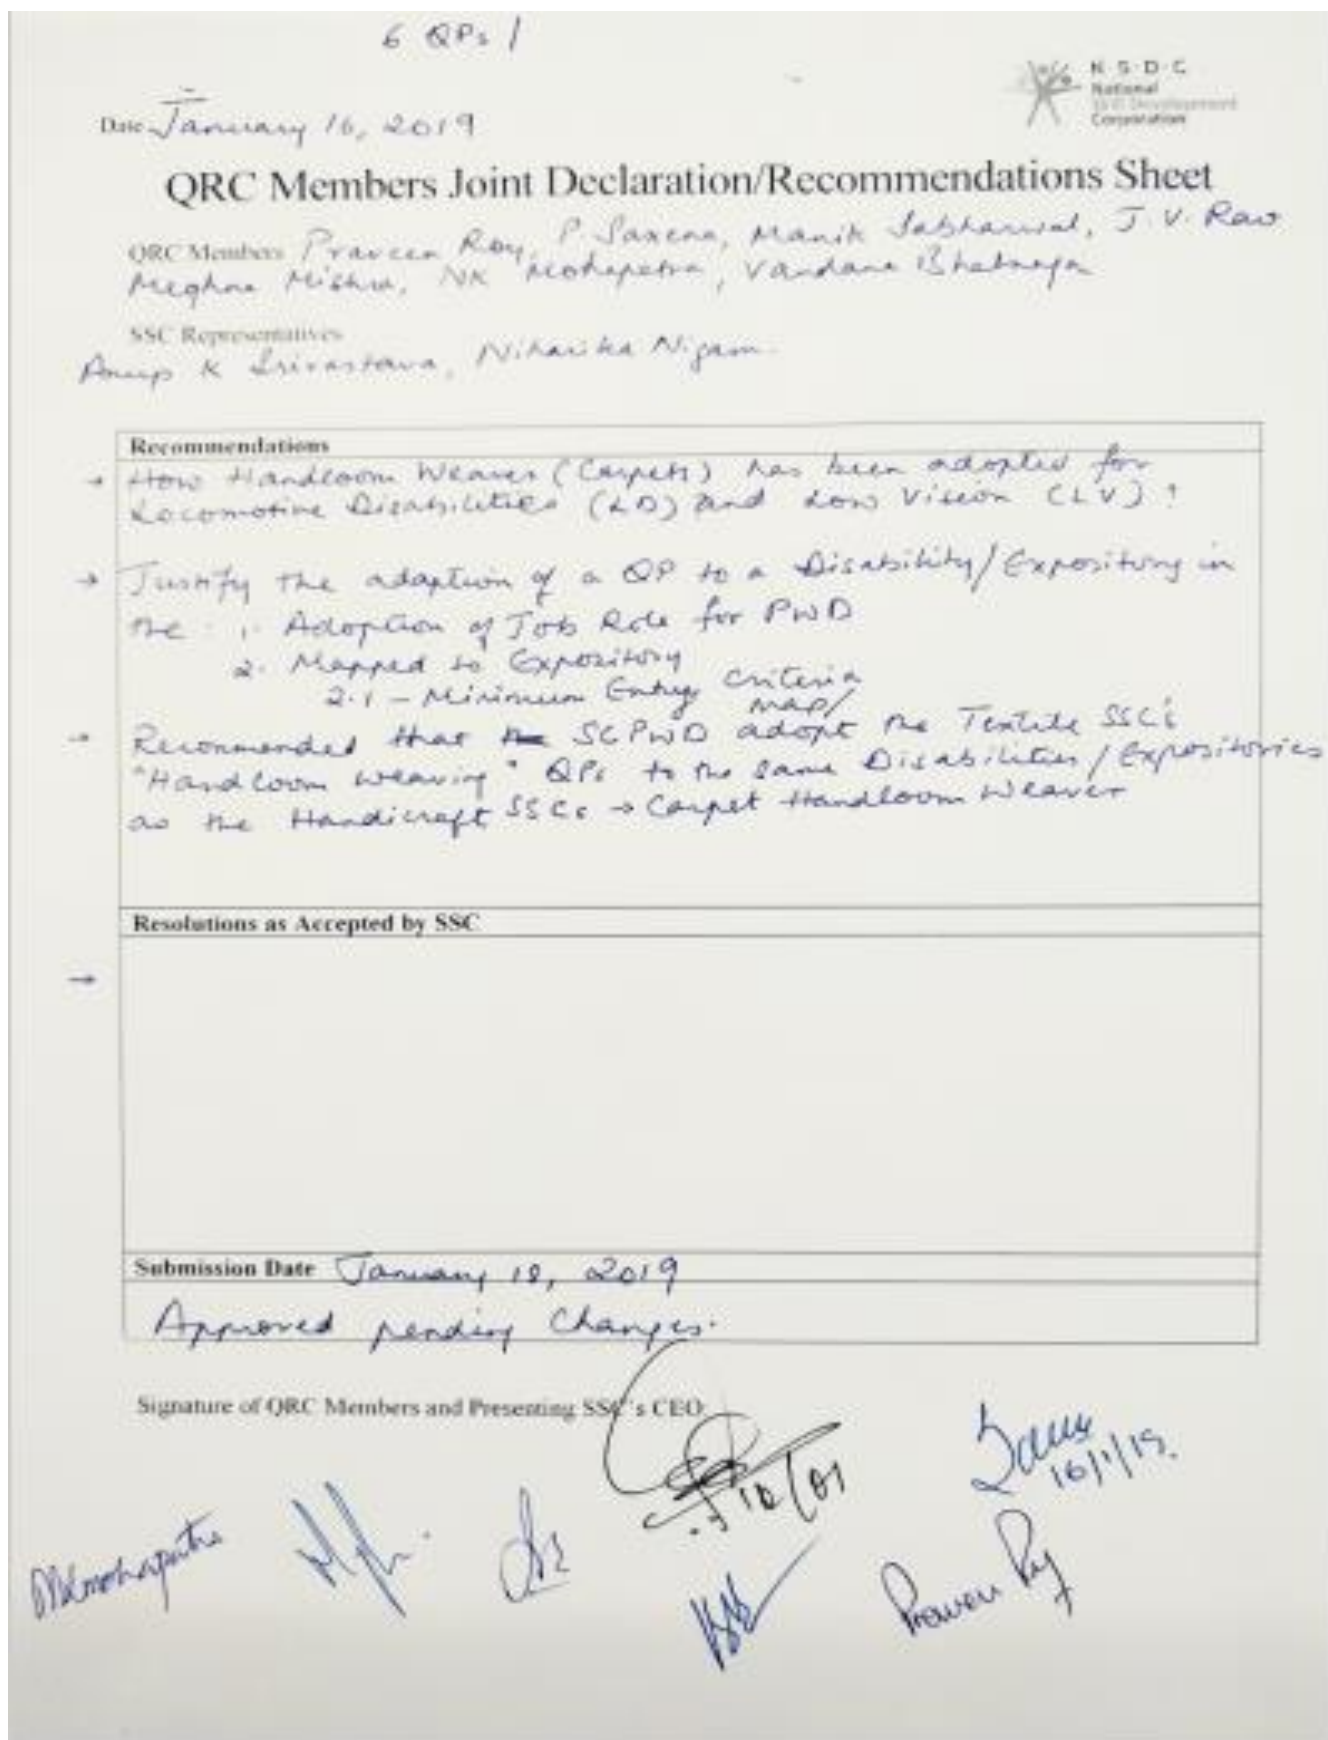 6 QPs /
N·S·D·C
National
Skill Development
Corporation
Date January 16, 2019
QRC Members Joint Declaration/Recommendations Sheet
QRC Members Praveen Roy, P. Saxena, Manik Sabharwal, J.V. Rao
Meghna Mishra, NK Mohapatra, Vandana Bhatnagar
SSC Representatives
Anup K Srivastava, Niharika Nigam
Recommendations
→ How Handloom Weaver (Carpets) has been adopted for
Locomotive Disabilities (LD) and Low Vision (LV)?
→ Justify the adaption of a QP to a Disability/Expository in
the : 1. Adoption of Job Role for PwD
2. Mapped to Expository
2.1 - Minimum Entry Criteria
map/
→ Recommended that SCPwD adopt the Textile SSC's
"Handloom weaving" QPs to the same Disabilities/Expositories
as the Handicraft SSCs → Carpet Handloom Weaver
Resolutions as Accepted by SSC
→
Submission Date January 18, 2019
Approved pending Changes.
Signature of QRC Members and Presenting SSC's CEO
16/1/19.
Praveen Roy